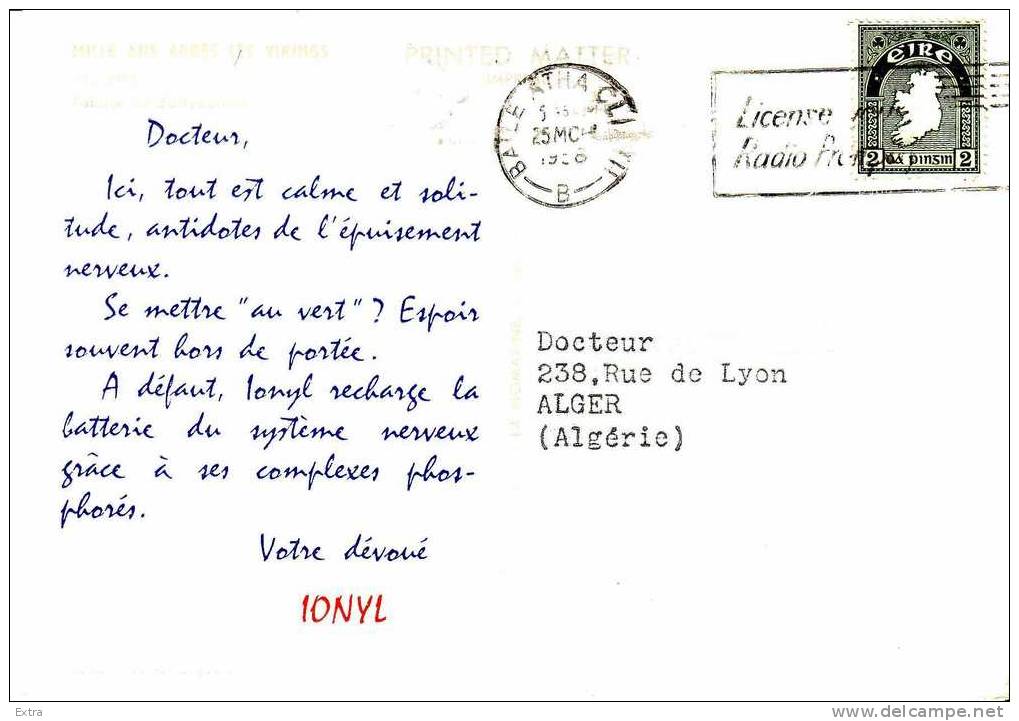 MILLE ANS APRÈS LES VIKINGS
PRINTED MATTER
Docteur,
Ici, tout est calme et soli-
tude, antidotes de l'épuisement
nerveux.
Se mettre "au vert" ? Espoir
souvent hors de portée.
A défaut, Ionyl recharge la
batterie du système nerveux
grâce à ses complexes phos-
phorés.
Votre dévoué
IONYL
BAILE ATHA CLIATH
25 MCH
B
License
Radio
EIRE
2 PINSIN 2
Docteur
238,Rue de Lyon
ALGER
(Algérie)
Extra
www.delcampe.net